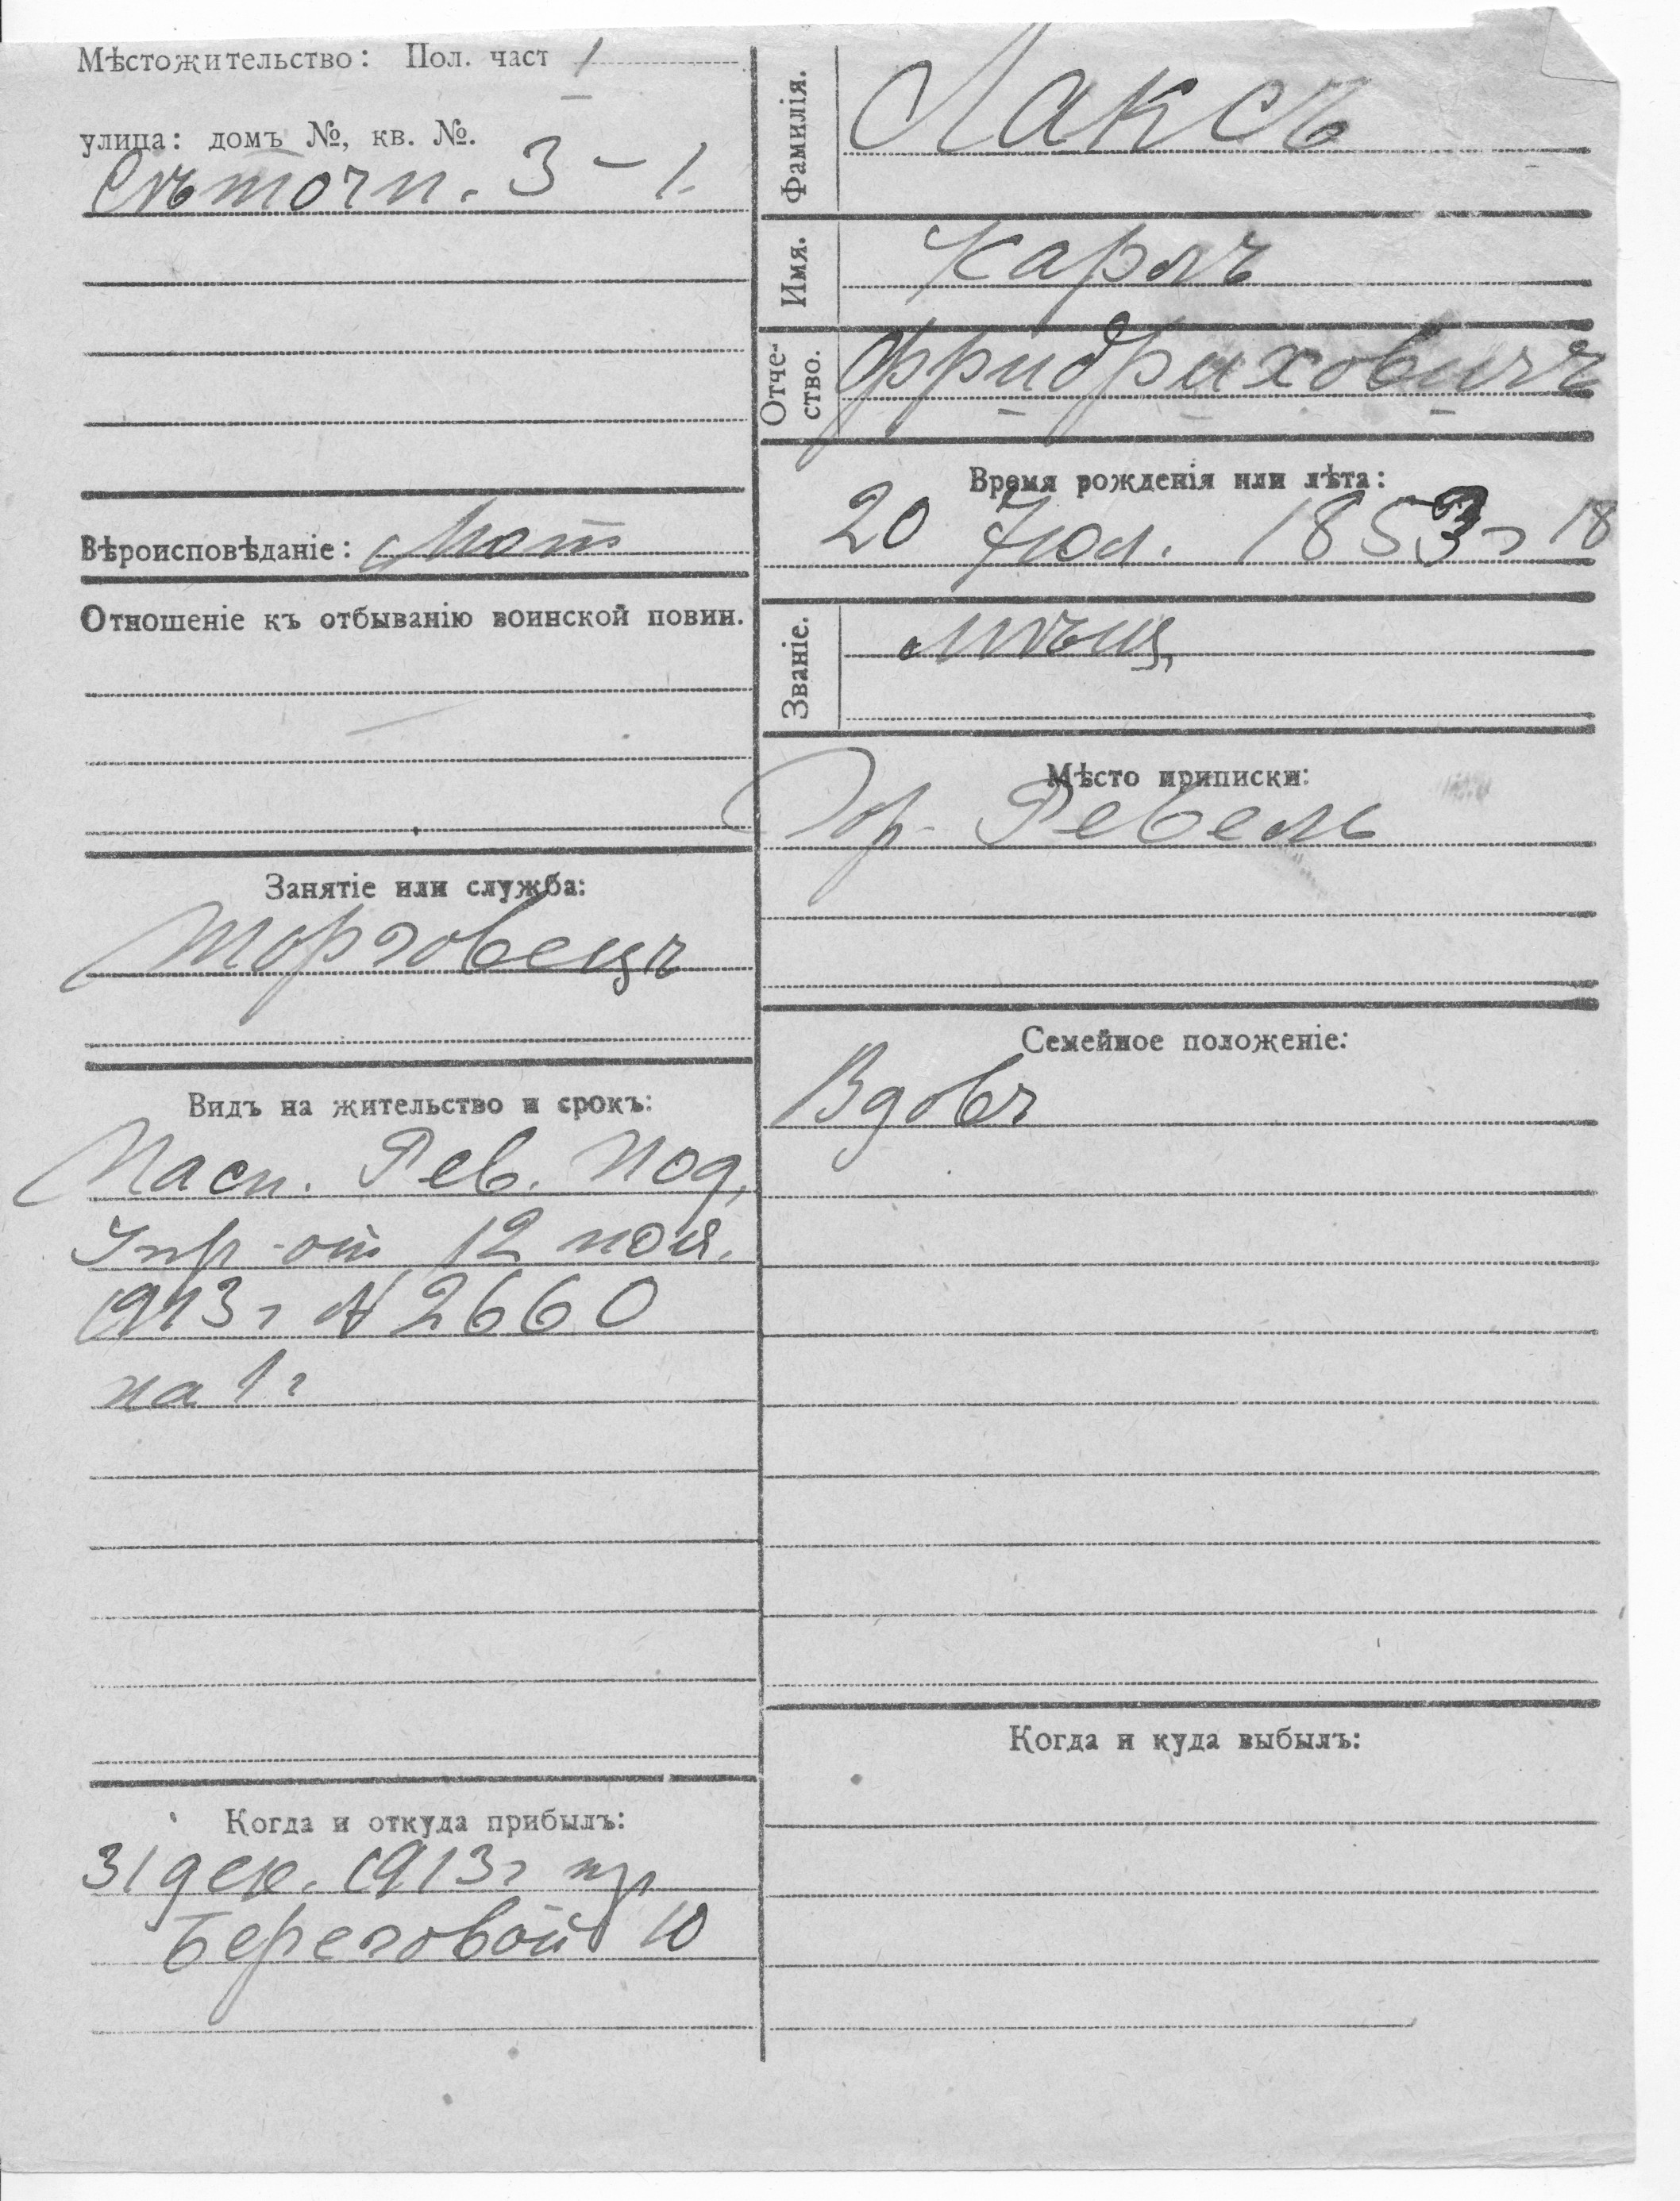 Мѣстожительство: Пол. част 1
улица: домъ №, кв. №.
3 – 1.
Вѣроисповѣданіе: Лют
Отношеніе къ отбыванію воинской повин.
Занятіе или служба:
Торговецъ
Видъ на жительство и срокъ:
Пасп. Рев. Под.
Упр. от 12 ноя.
1913 г № 2660
на 1 г
Когда и откуда прибылъ:
31 дек. 1913 г
Береговой 10
Фамилія. Лаксъ
Имя. Карлъ
Отче-ство. Фридриховичъ
Время рожденія или лѣта:
20 Іюл. 1853 г 18
Званіе. Мѣщ.
Мѣсто приписки:
Гор. Ревель
Семейное положеніе:
Вдовъ
Когда и куда выбылъ: